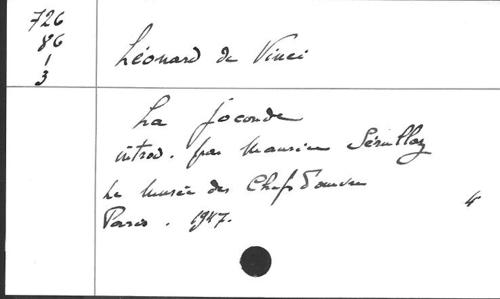 726
86
1
3
Léonard de Vinci
La Joconde
introd. par Maurice Sérullaz
Le Musée des Chefs d'œuvre
Paris. 1947.
4